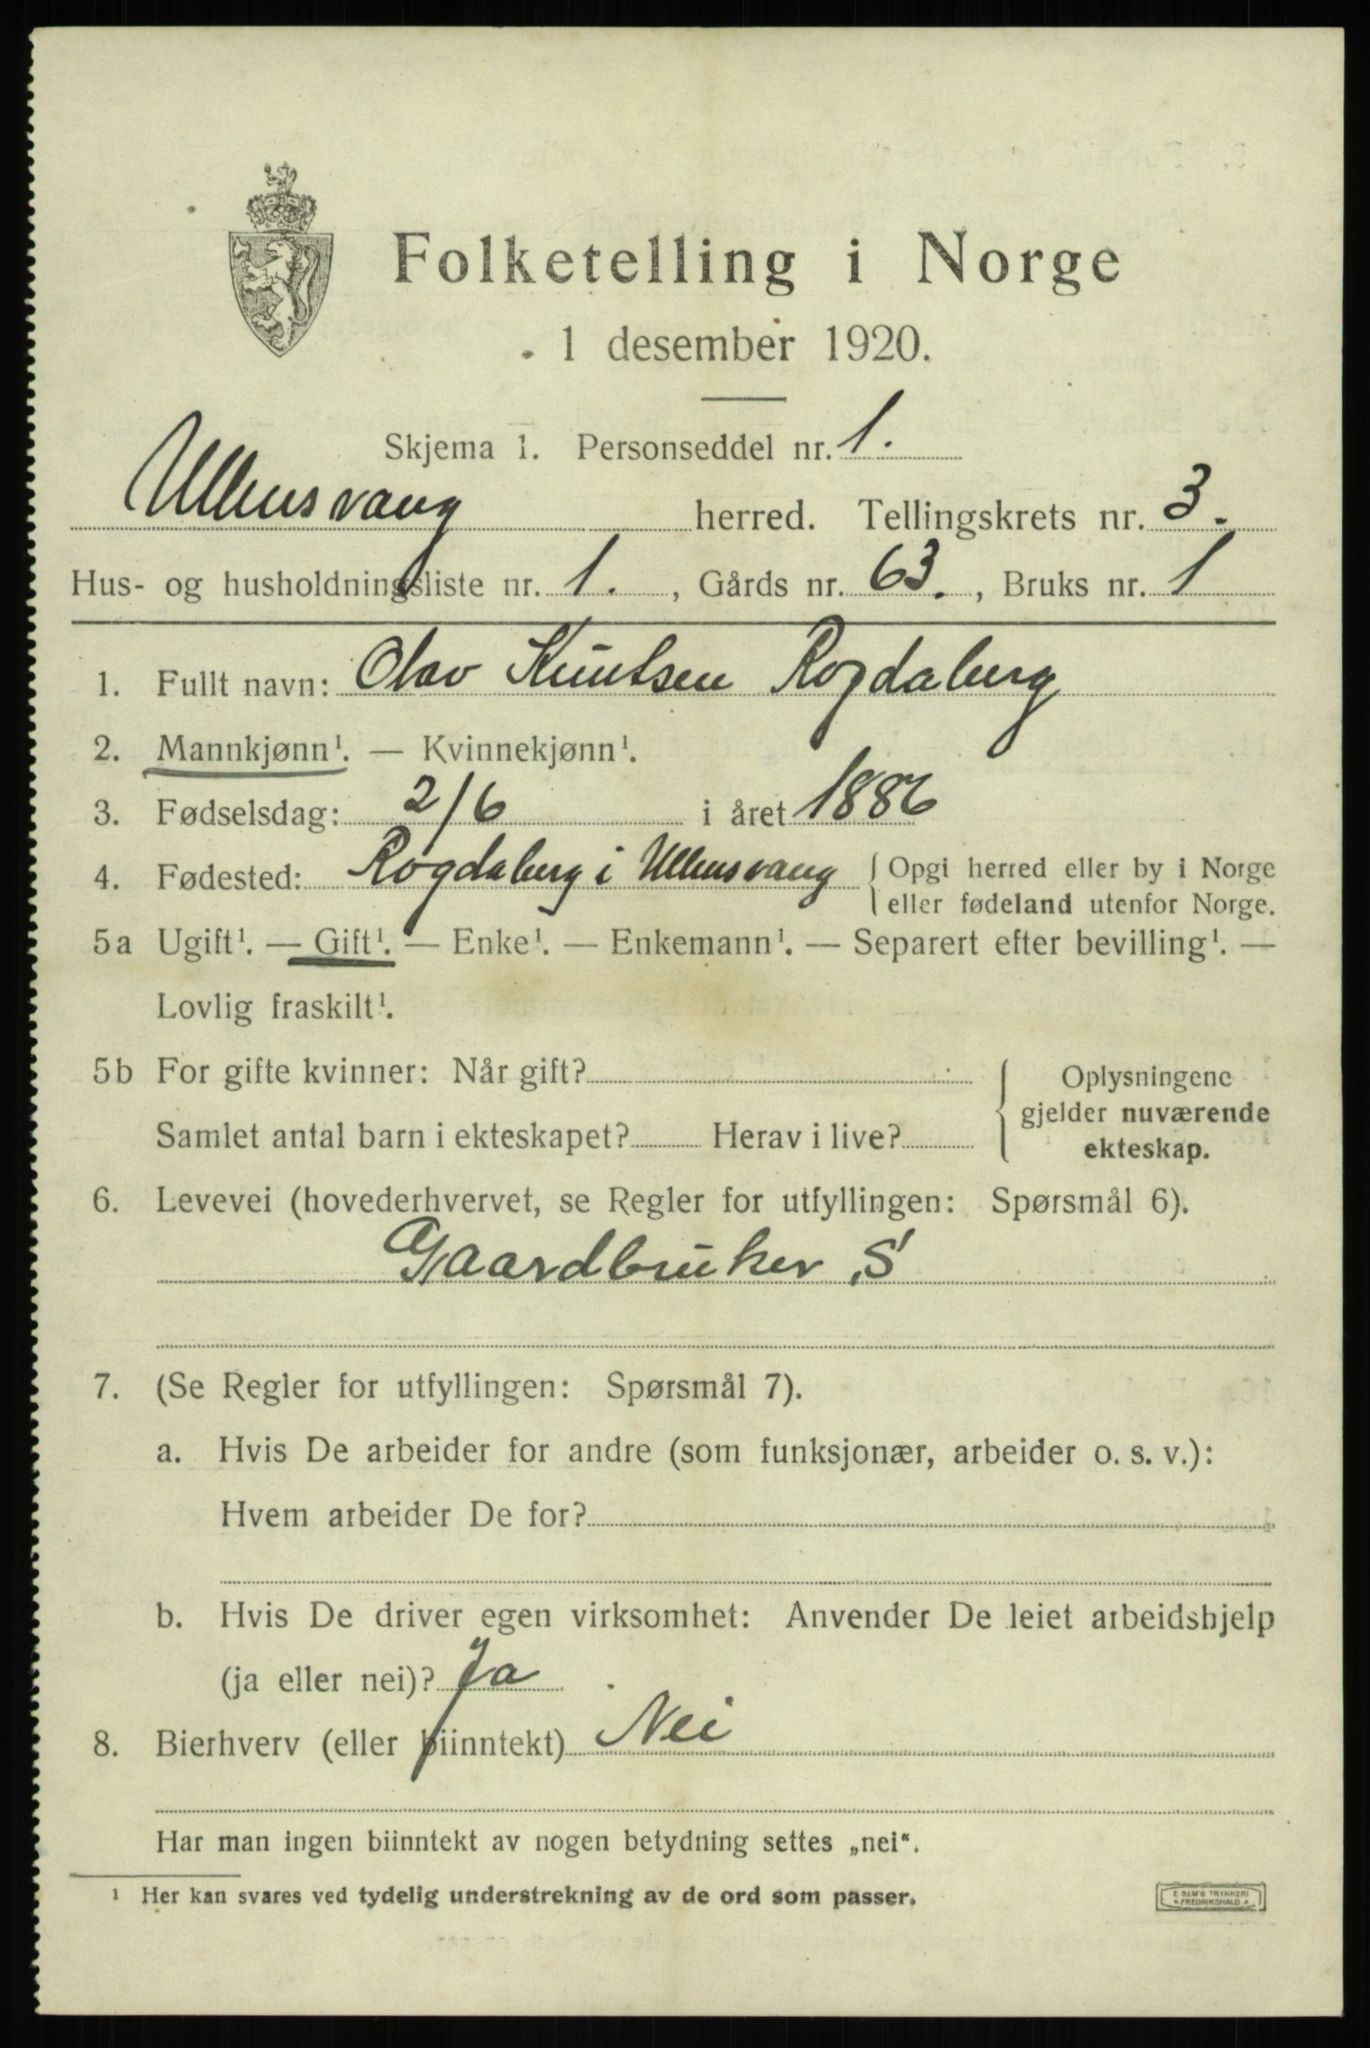 Folketelling i Norge
1 desember 1920.
Skjema 1. Personseddel nr. 1.
Ullensvang herred. Tellingskrets nr. 3.
Hus- og husholdningsliste nr. 1. , Gårds nr. 63. , Bruks nr. 1
1. Fullt navn: Olav Knutsen Rogdaberg
2. Mannkjønn¹. — Kvinnekjønn¹.
3. Fødselsdag: 2/6 i året 1886
4. Fødested: Rogdaberg i Ullensvang { Opgi herred eller by i Norge
eller fødeland utenfor Norge.
5a Ugift¹. — Gift¹. — Enke¹. — Enkemann¹. — Separert efter bevilling¹. —
Lovlig fraskilt¹.
5b For gifte kvinner: Når gift?
Samlet antal barn i ekteskapet? Herav i live?
{ Oplysningene
gjelder nuværende
ekteskap.
6. Levevei (hovederhvervet, se Regler for utfyllingen: Spørsmål 6).
Gaardbruker, S
7. (Se Regler for utfyllingen: Spørsmål 7).
a. Hvis De arbeider for andre (som funksjonær, arbeider o. s. v.):
Hvem arbeider De for?
b. Hvis De driver egen virksomhet: Anvender De leiet arbeidshjelp
(ja eller nei)? Ja
8. Bierhverv (eller biinntekt) Nei
Har man ingen biinntekt av nogen betydning settes „nei“.
¹ Her kan svares ved tydelig understrekning av de ord som passer.
E. SEM'S TRYKKERI
FREDRIKSHALD